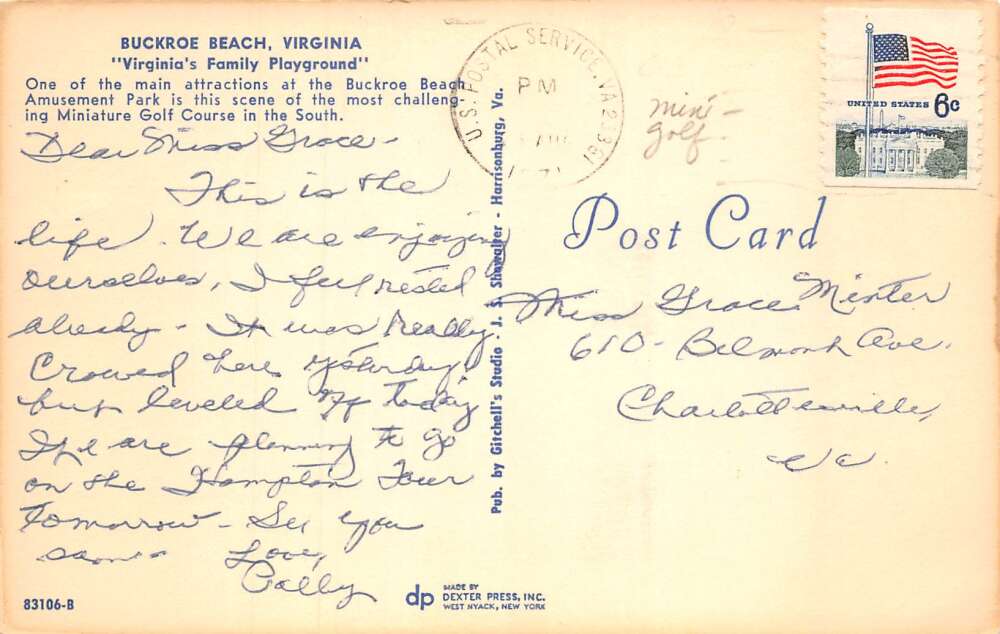 BUCKROE BEACH, VIRGINIA
"Virginia's Family Playground"
One of the main attractions at the Buckroe Beach
Amusement Park is this scene of the most challeng-
ing Miniature Golf Course in the South.
Dear Miss Grace-
This is the
life. We are enjoying
ourselves, I feel rested
already - It was really
Crowed here yesterday
but leveled off today
We are planning to go
on the Hampton Tour
tomorrow - See you
soon - Love,
Polly
83106-B
Pub. by Gitchell's Studio - J. S. Showalter - Harrisonburg, Va.
dp
MADE BY
DEXTER PRESS, INC.
WEST NYACK, NEW YORK
U.S. POSTAL SERVICE, VA
PM
mini-
golf
UNITED STATES 6c
Post Card
Miss Grace Minter
610 - Belmont Ave.
Charlottesville,
Va.